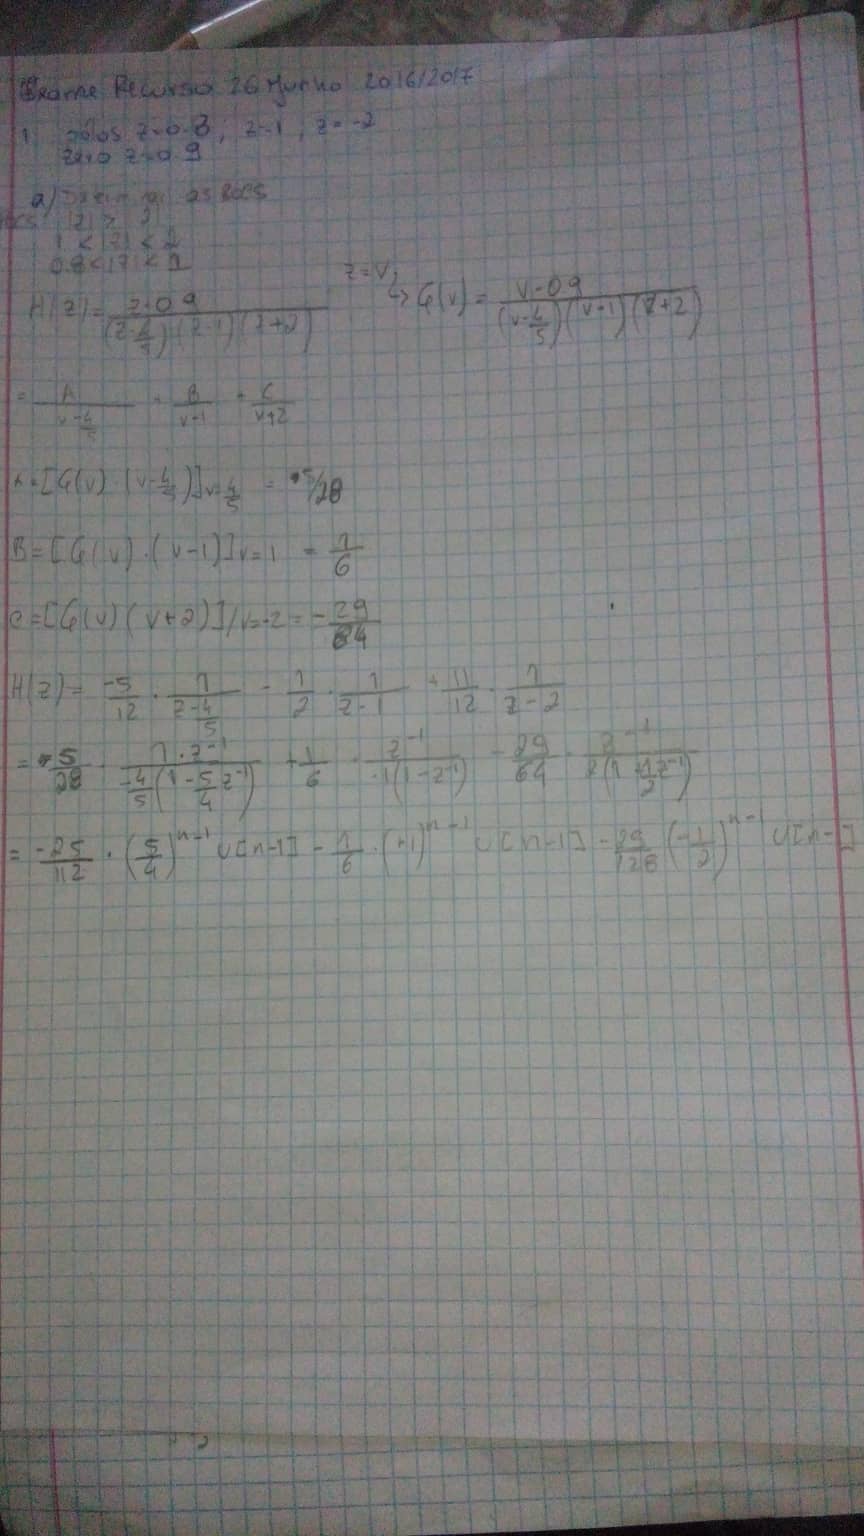 Exame Recurso 26 Junho 2016/2017
1 polos z=0.8, z=1, z=-2
zero z=0.9
a) as ROCS
|z| > |2|
1 < |z| < 2
0.8<|z|< 1
H(z) = z-0.9 / (z-4/5)(z-1)(z+2) z=v, ↳ G(v) = v-0.9 / (v-4/5)(v-1)(z+2)
= A / v-4/5 + B / v-1 + C / v+2
A=[G(v)·(v-4/5)]v=4/5 = 5/28
B=[G(v)·(v-1)]v=1 = 1/6
C=[G(v)(v+2)]/v=-2 = -29/84
H(z) = -5/12 · 1/z-4/5 - 1/2 · 1/z-1 + 11/12 · 1/z-2
= -5/28 · 1·z⁻¹ / -4/5(1-5/4 z⁻¹) + 1/6 · z⁻¹ / -1(1-z⁻¹) - 29/64 · z⁻¹ / 2(1+1/2 z⁻¹)
= -25/112 · (5/4)ⁿ⁻¹ U[n-1] - 1/6 · (+1)ⁿ⁻¹ U[n-1] - 29/128 (-1/2)ⁿ⁻¹ U[n-1]